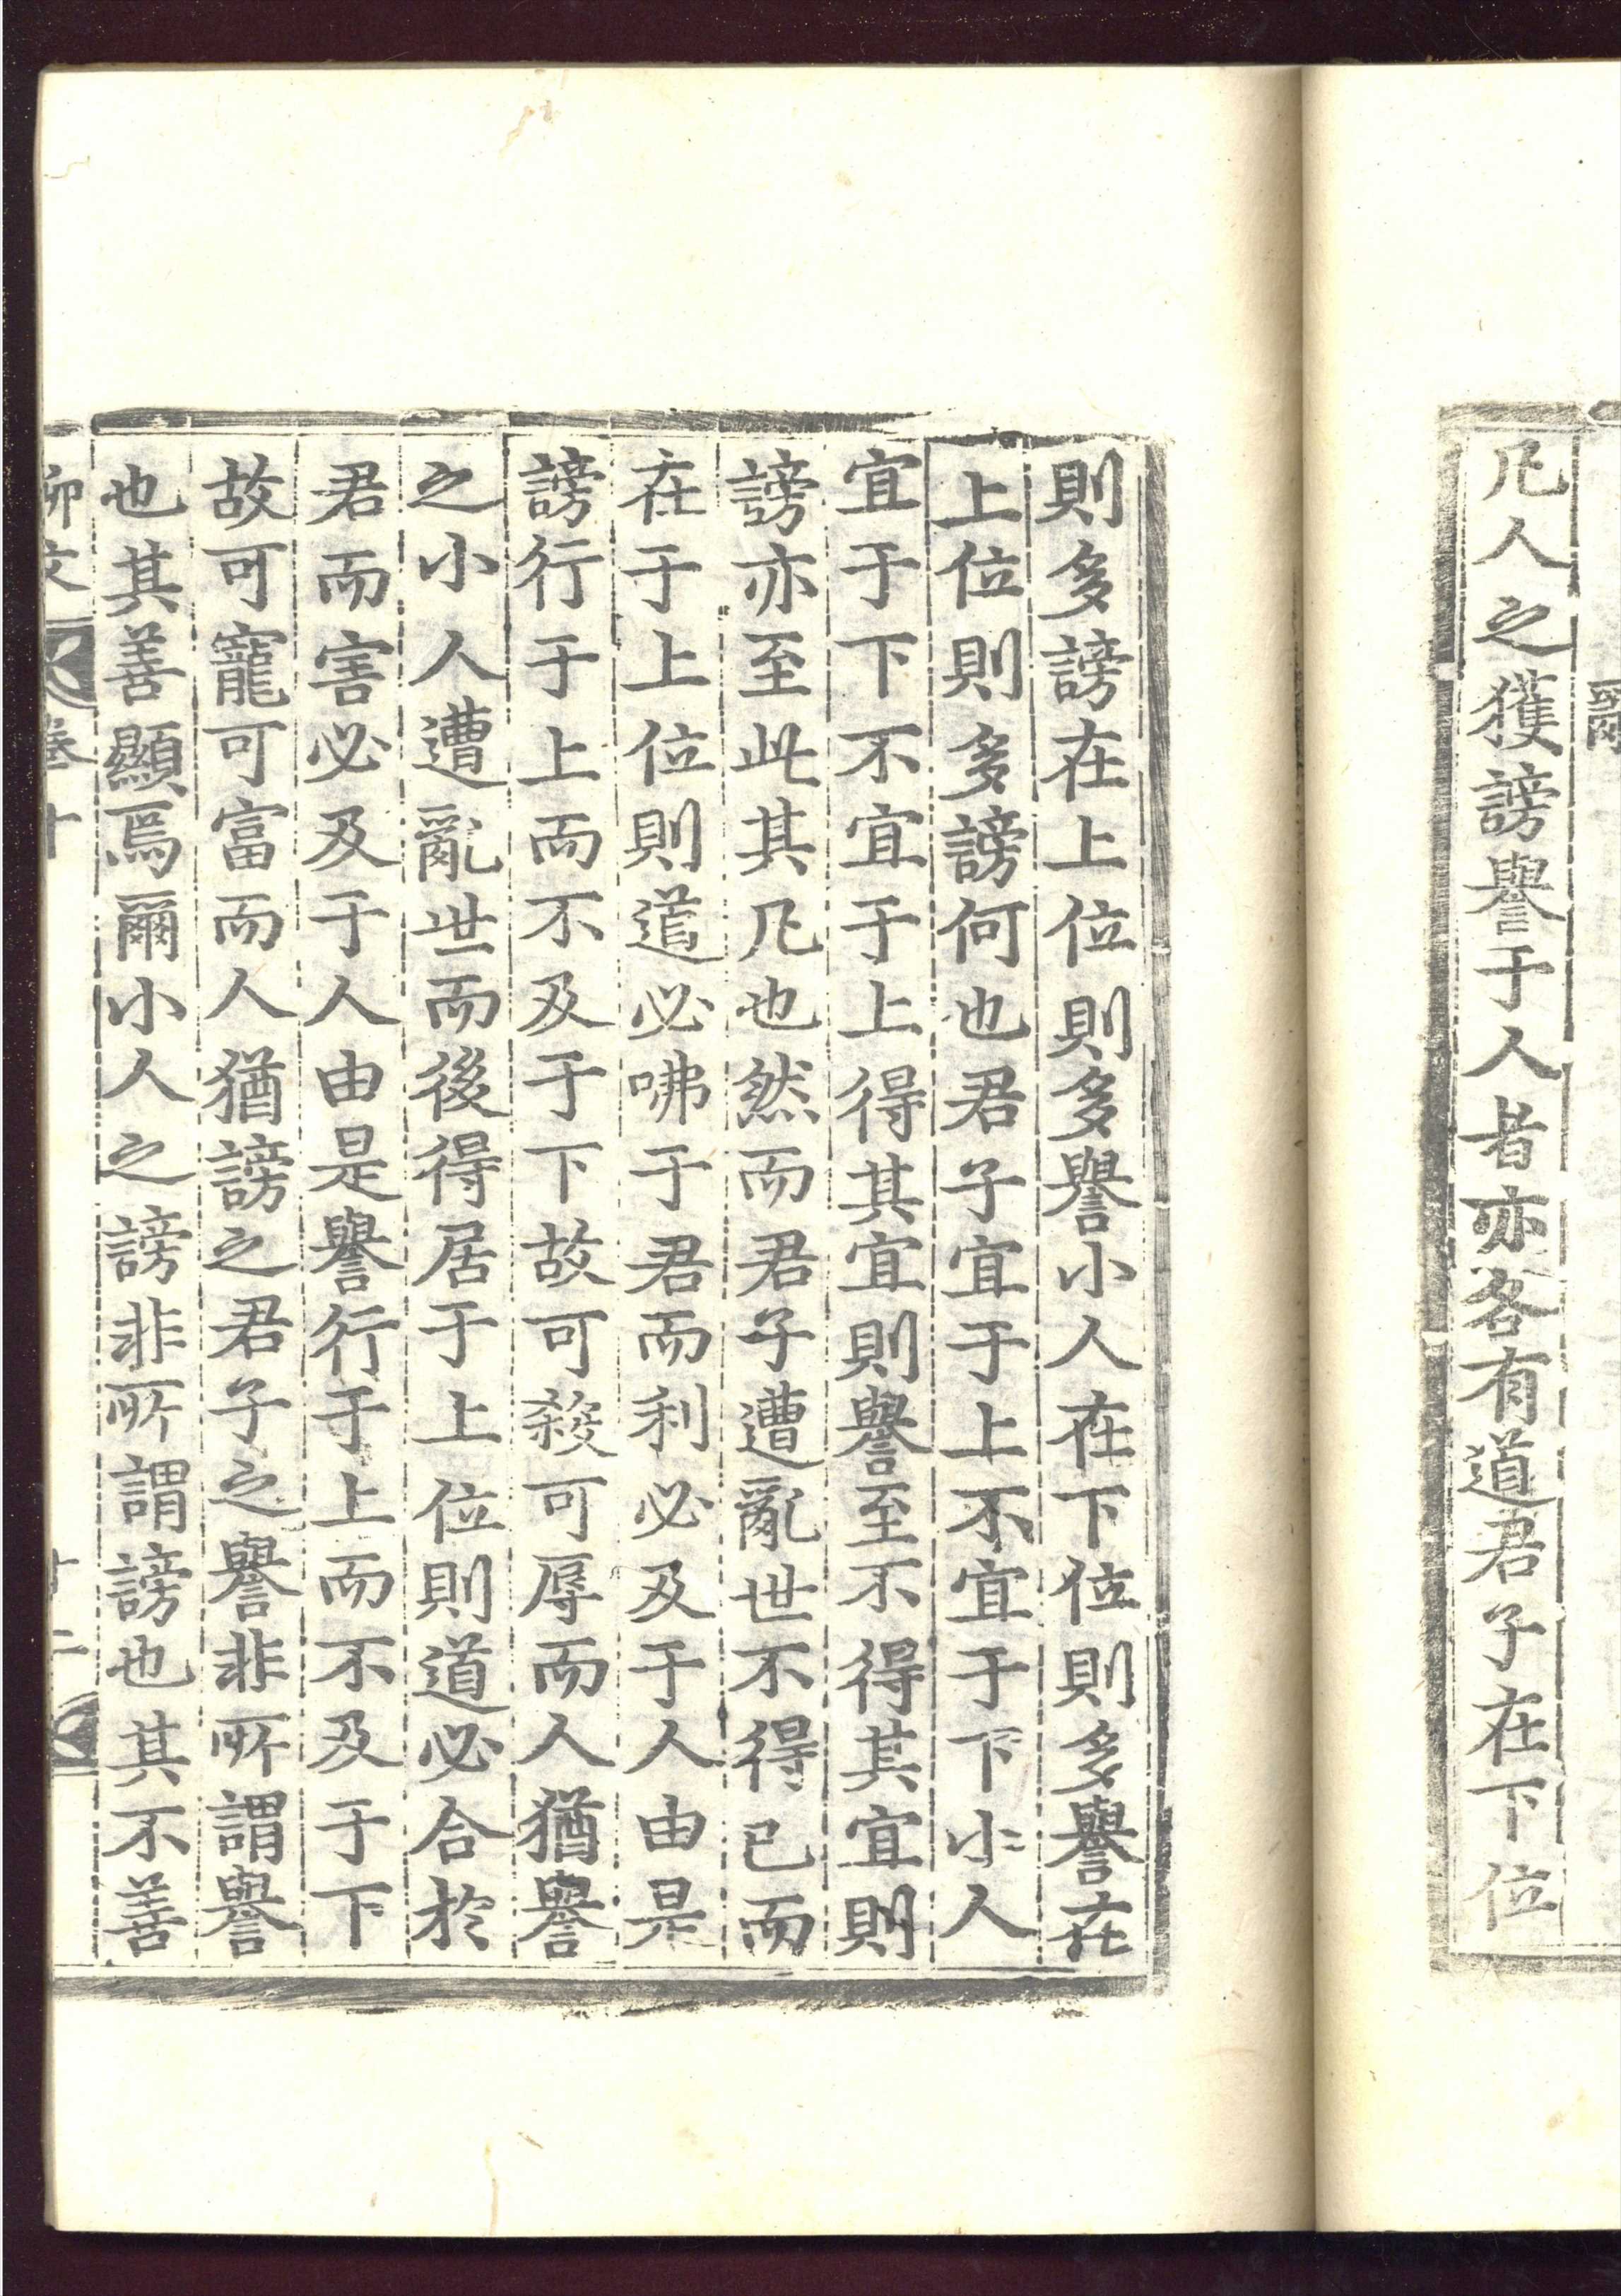 爾
凡人之獲謗譽于人者亦各有道君子在下位
則多謗在上位則多譽小人在下位則多譽在
上位則多謗何也君子宜于上不宜于下小人
宜于下不宜于上得其宜則譽至不得其宜則
謗亦至此其凡也然而君子遭亂世不得已而
在于上位則道必咈于君而利必及于人由是
謗行于上而不及于下故可殺可辱而人猶譽
之小人遭亂世而後得居于上位則道必合於
君而害必及于人由是譽行于上而不及于下
故可寵可富而人猶謗之君子之譽非所謂譽
也其善顯焉爾小人之謗非所謂謗也其不善
柳文 卷十 十二